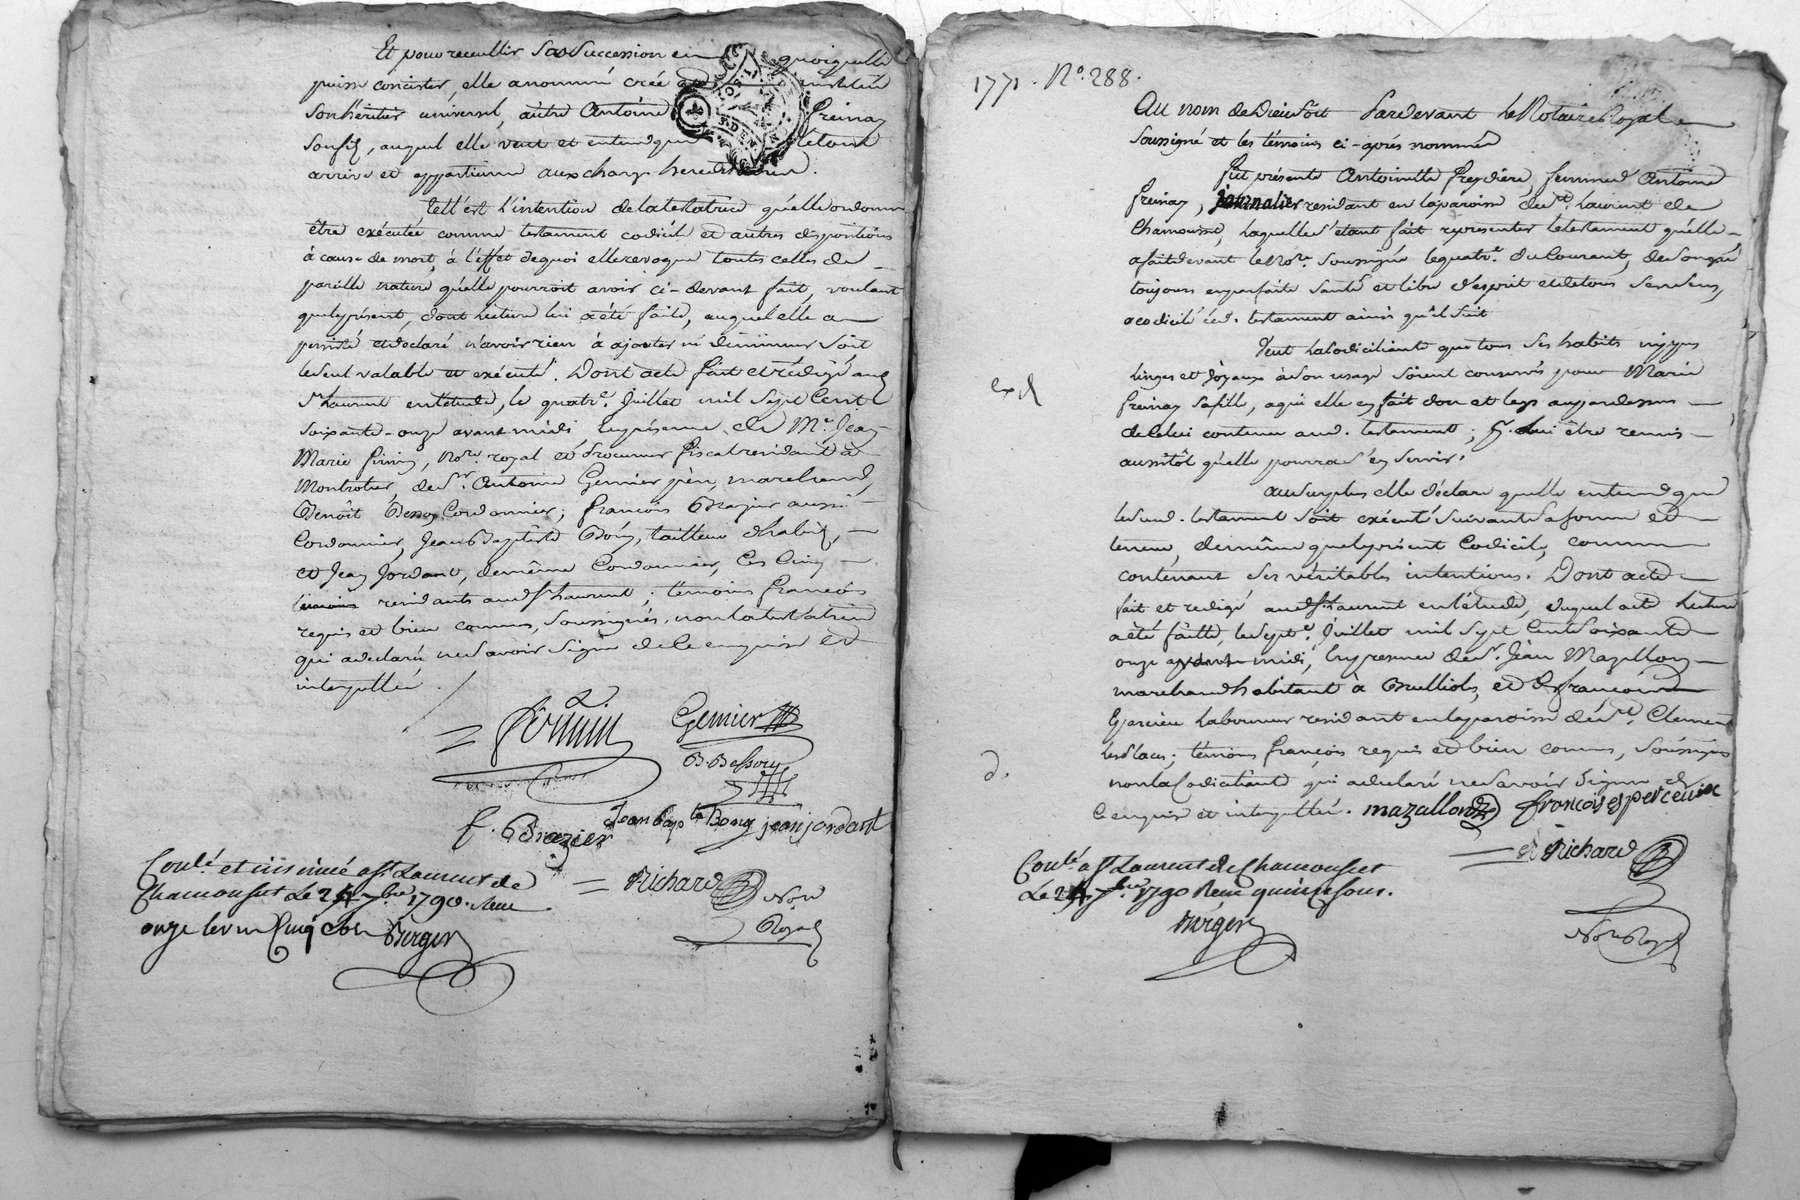 Et pour receuillir sa succession en quoiqu'elle
puisse concister, elle a nommé créé et institué
son héritier universel, autre Antoine Freinay
son fils, auquel elle veut et entend que le tout
arrive et appartienne aux charges héréditaires.
Tell'est l'intention de la testatrice qu'elle ordonne
être exécutée comme testament codicile et autres dispositions
à cause de mort, à l'effet de quoi elle revoque toutes celles de
pareille nature qu'elle pourroit avoir ci-devant fait, voulant
que le présent, dont lecture lui a été faite, auquel elle a
persisté et déclaré n'avoir rien à ajouter ni diminuer soit
le seul valable et exécuté. Dont acte fait et redigé aud.
St Laurent en l'étude, le quatre. Juillet mil sept cent
soixante-onze avant midi en présence de Me Jean
Marie nore. royal et Procureur fiscal residant à
Montrotier, de Sr. Antoine Gemier père, marchand,
Benoît Besson Cordonnier; François Brazier aussi
Cordonnier, Jean Baptiste Bony, tailleur d'habits,
et Jean Jordant, de même Cordonnier, les cinq
témoins residants aud. St Laurent; témoins François
requis et bien connus, soussignés, non la testatrice
qui a declaré ne savoir signer de ce enquise et
interpellée.
Gemier
B. Besson
Jean Bapte Bony jean jordant
f. Brazier
Richard
Nore
Royal
Conlé et insinué a St Laurent de
Chamousset Le 24 7bre 1790. Reçu
onze livres cinq sols Berger
1771. No. 288.
Au nom de Dieu soit Pardevant le Notaire Royal
soussigné et les témoins ci-après nommés
fut présente Antoinette Freydiere, femme d'Antoine
Freinay, journalier residant en la paroisse de St. Laurent de
Chamousset, laquelle s'étant fait représenter le testament qu'elle
a fait devant le Nore. soussigné le quatre. du courant, de son gré
toujours en parfaite santé et libre d'esprit et de tous ses sens,
a codicilé led. testament ainsi qu'il suit
Veut la Codiciliante que tous ses habits nippes
linges et joyaux à son usage soient conservés pour Marie
Freinay sa fille, a qui elle en fait don et legs au par dessus
de celui contenu aud. testament; p. lui être remis
aussitôt qu'elle pourra s'en servir.
exd
Au surplus elle déclare qu'elle entend que
le sud. testament soit exécuté suivant sa forme et
teneur, de même que le présent Codicile, comme
contenant ses véritables intentions. Dont acte
fait et redigé aud. St Laurent en l'étude, duquel acte lecture
a été faitte, le septe. Juillet mil sept cent soixante
onze avant midi, en présence de Sr. Jean Mazallon
marchand habitant à Brulliole, et de François
Espercieu laboureur residant en la paroisse de St. Clement
les Places; témoins françois requis et bien connus, soussignés
non la Codiciliante qui a declaré ne savoir signer de
ce enquise et interpellée. mazallon françois espercieux
d.
Richard
Nore Royal
Conlé a St Laurent de Chamousset
Le 24 7bre 1790 Reçu quinze sous.
Berger